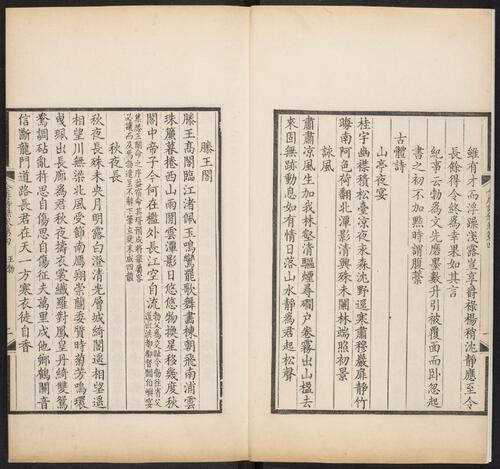 維有才而浮躁淺露豈享爵祿楊稍沈靜應至令
長餘得令終為幸果如其言
紀事云勃為文先磨墨數升引被覆面而臥忽起
書之初不加點時謂腹藁
古體詩
山亭夜宴
桂宇幽襟積松臺涼夜永森沈野逕寒肅穆巖扉靜竹
晦南阿色荷翻北潭影清興殊未闌林端照初景
詠風
肅肅涼風生加我林壑清驅煙尋磵户卷霧出山楹去
來固無跡動息如有情日落山水靜為君起松聲
滕王閣
滕王高閣臨江渚佩玉鳴鸞罷歌舞畫棟朝飛南浦雲
珠簾暮捲西山雨閒雲潭影日悠悠物換星移幾度秋
閣中帝子今何在檻外長江空自流
秋夜長
秋夜長殊未央月明露白澄清光層城綺閣遙相望遙
相望川無梁北風受節南鴈翔崇蘭委質時菊芳鳴環
曳珮出長廊為君秋夜擣衣裳纖羅對鳳皇丹綺雙鴛
鴦調砧亂杵思自傷思自傷征夫萬里戍他鄉鶴關音
信斷龍門道路長君在天一方寒衣徒自香